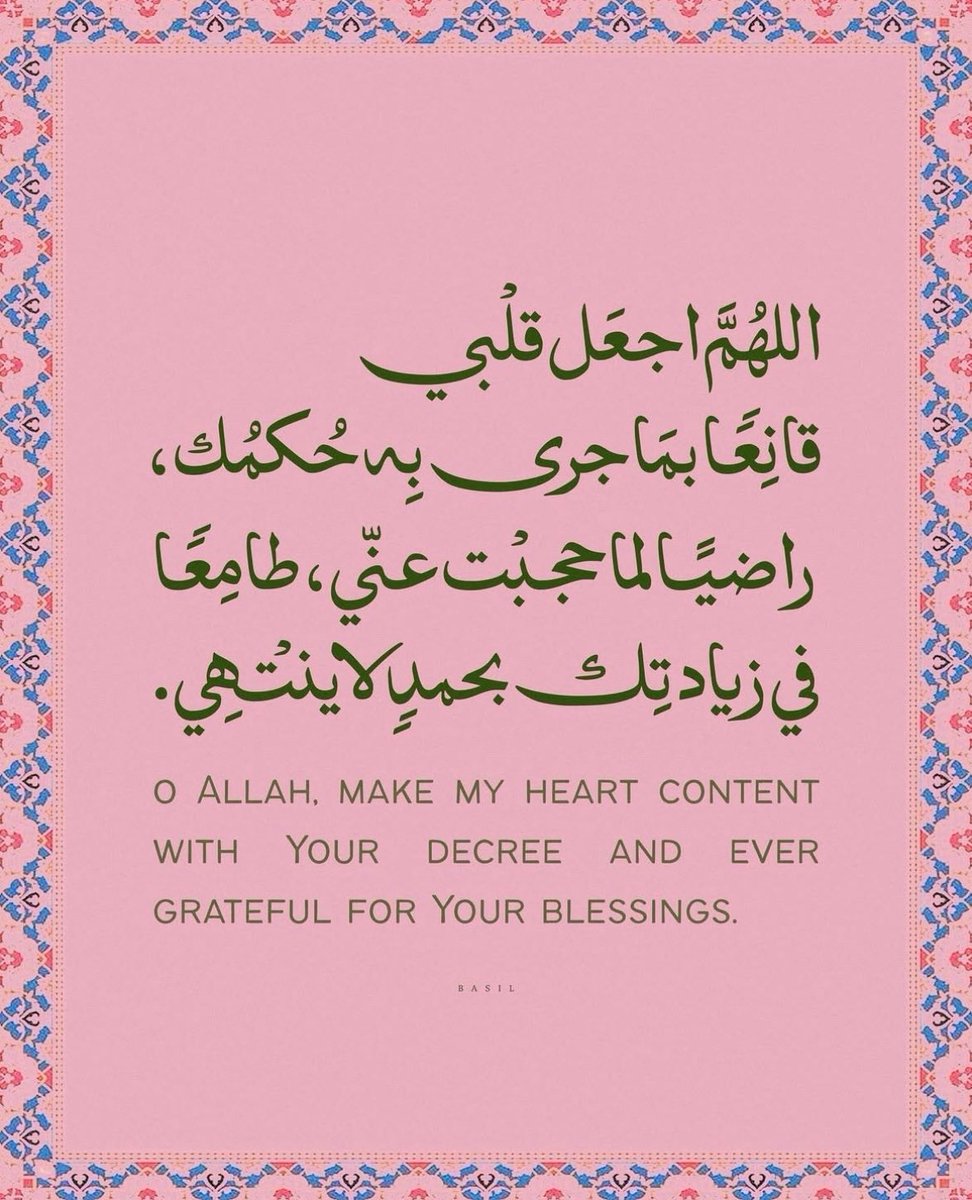 اللهُمَّ اجعَل قلْبي
قانِعًا بمَا جرى بِه حُكمُك،
راضيًا لما حجبْت عنّي، طامِعًا
في زيادتِك بحمدٍ لا ينتْهِي.
O ALLAH, MAKE MY HEART CONTENT
WITH YOUR DECREE AND EVER
GRATEFUL FOR YOUR BLESSINGS.
BASIL